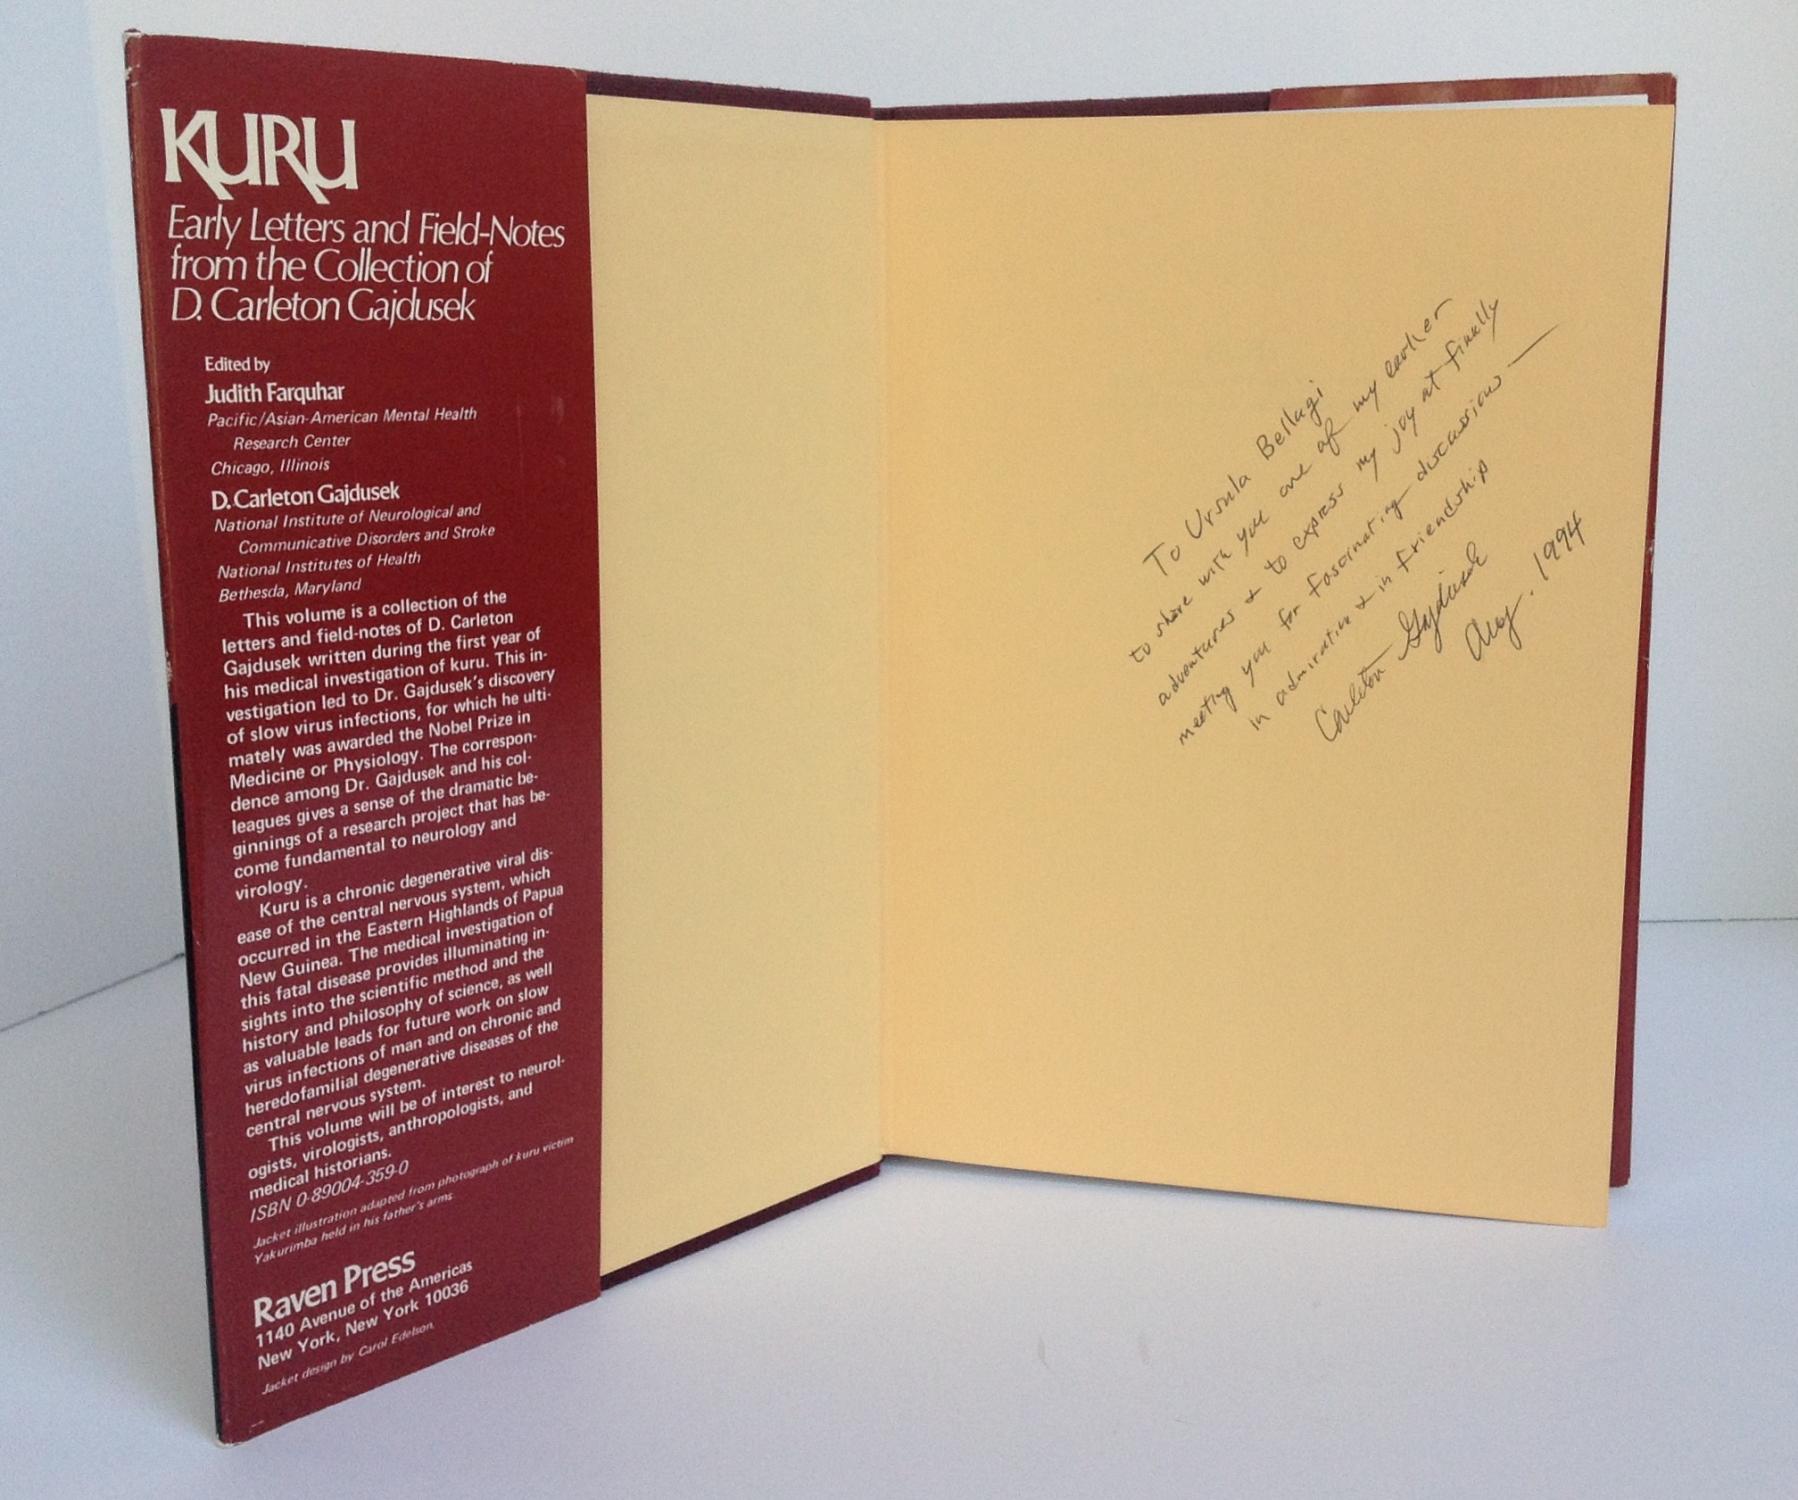 KURU
Early Letters and Field-Notes
from the Collection of
D. Carleton Gajdusek
Edited by
Judith Farquhar
Pacific/Asian-American Mental Health
Research Center
Chicago, Illinois
D. Carleton Gajdusek
National Institute of Neurological and
Communicative Disorders and Stroke
National Institutes of Health
Bethesda, Maryland
This volume is a collection of the
letters and field-notes of D. Carleton
Gajdusek written during the first year of
his medical investigation of kuru. This in-
vestigation led to Dr. Gajdusek's discovery
of slow virus infections, for which he ulti-
mately was awarded the Nobel Prize in
Medicine or Physiology. The correspon-
dence among Dr. Gajdusek and his col-
leagues gives a sense of the dramatic be-
ginnings of a research project that has be-
come fundamental to neurology and
virology.
Kuru is a chronic degenerative viral dis-
ease of the central nervous system, which
occurred in the Eastern Highlands of Papua
New Guinea. The medical investigation of
this fatal disease provides illuminating in-
sights into the scientific method and the
history and philosophy of science, as well
as valuable leads for future work on slow
virus infections of man and on chronic and
heredofamilial degenerative diseases of the
central nervous system.
This volume will be of interest to neurol-
ogists, virologists, anthropologists, and
medical historians.
ISBN 0-89004-359-0
Jacket illustration adapted from photograph of kuru victim
Yakurimba held in his father's arms
Raven Press
1140 Avenue of the Americas
New York, New York 10036
Jacket design by Carol Edelson.
To Ursula Bellugi
to share with you one of my earlier
adventures & to express my joy at finally
meeting you for fascinating discussions —
in admiration & in friendship
Carleton Gajdusek
Aug. 1994